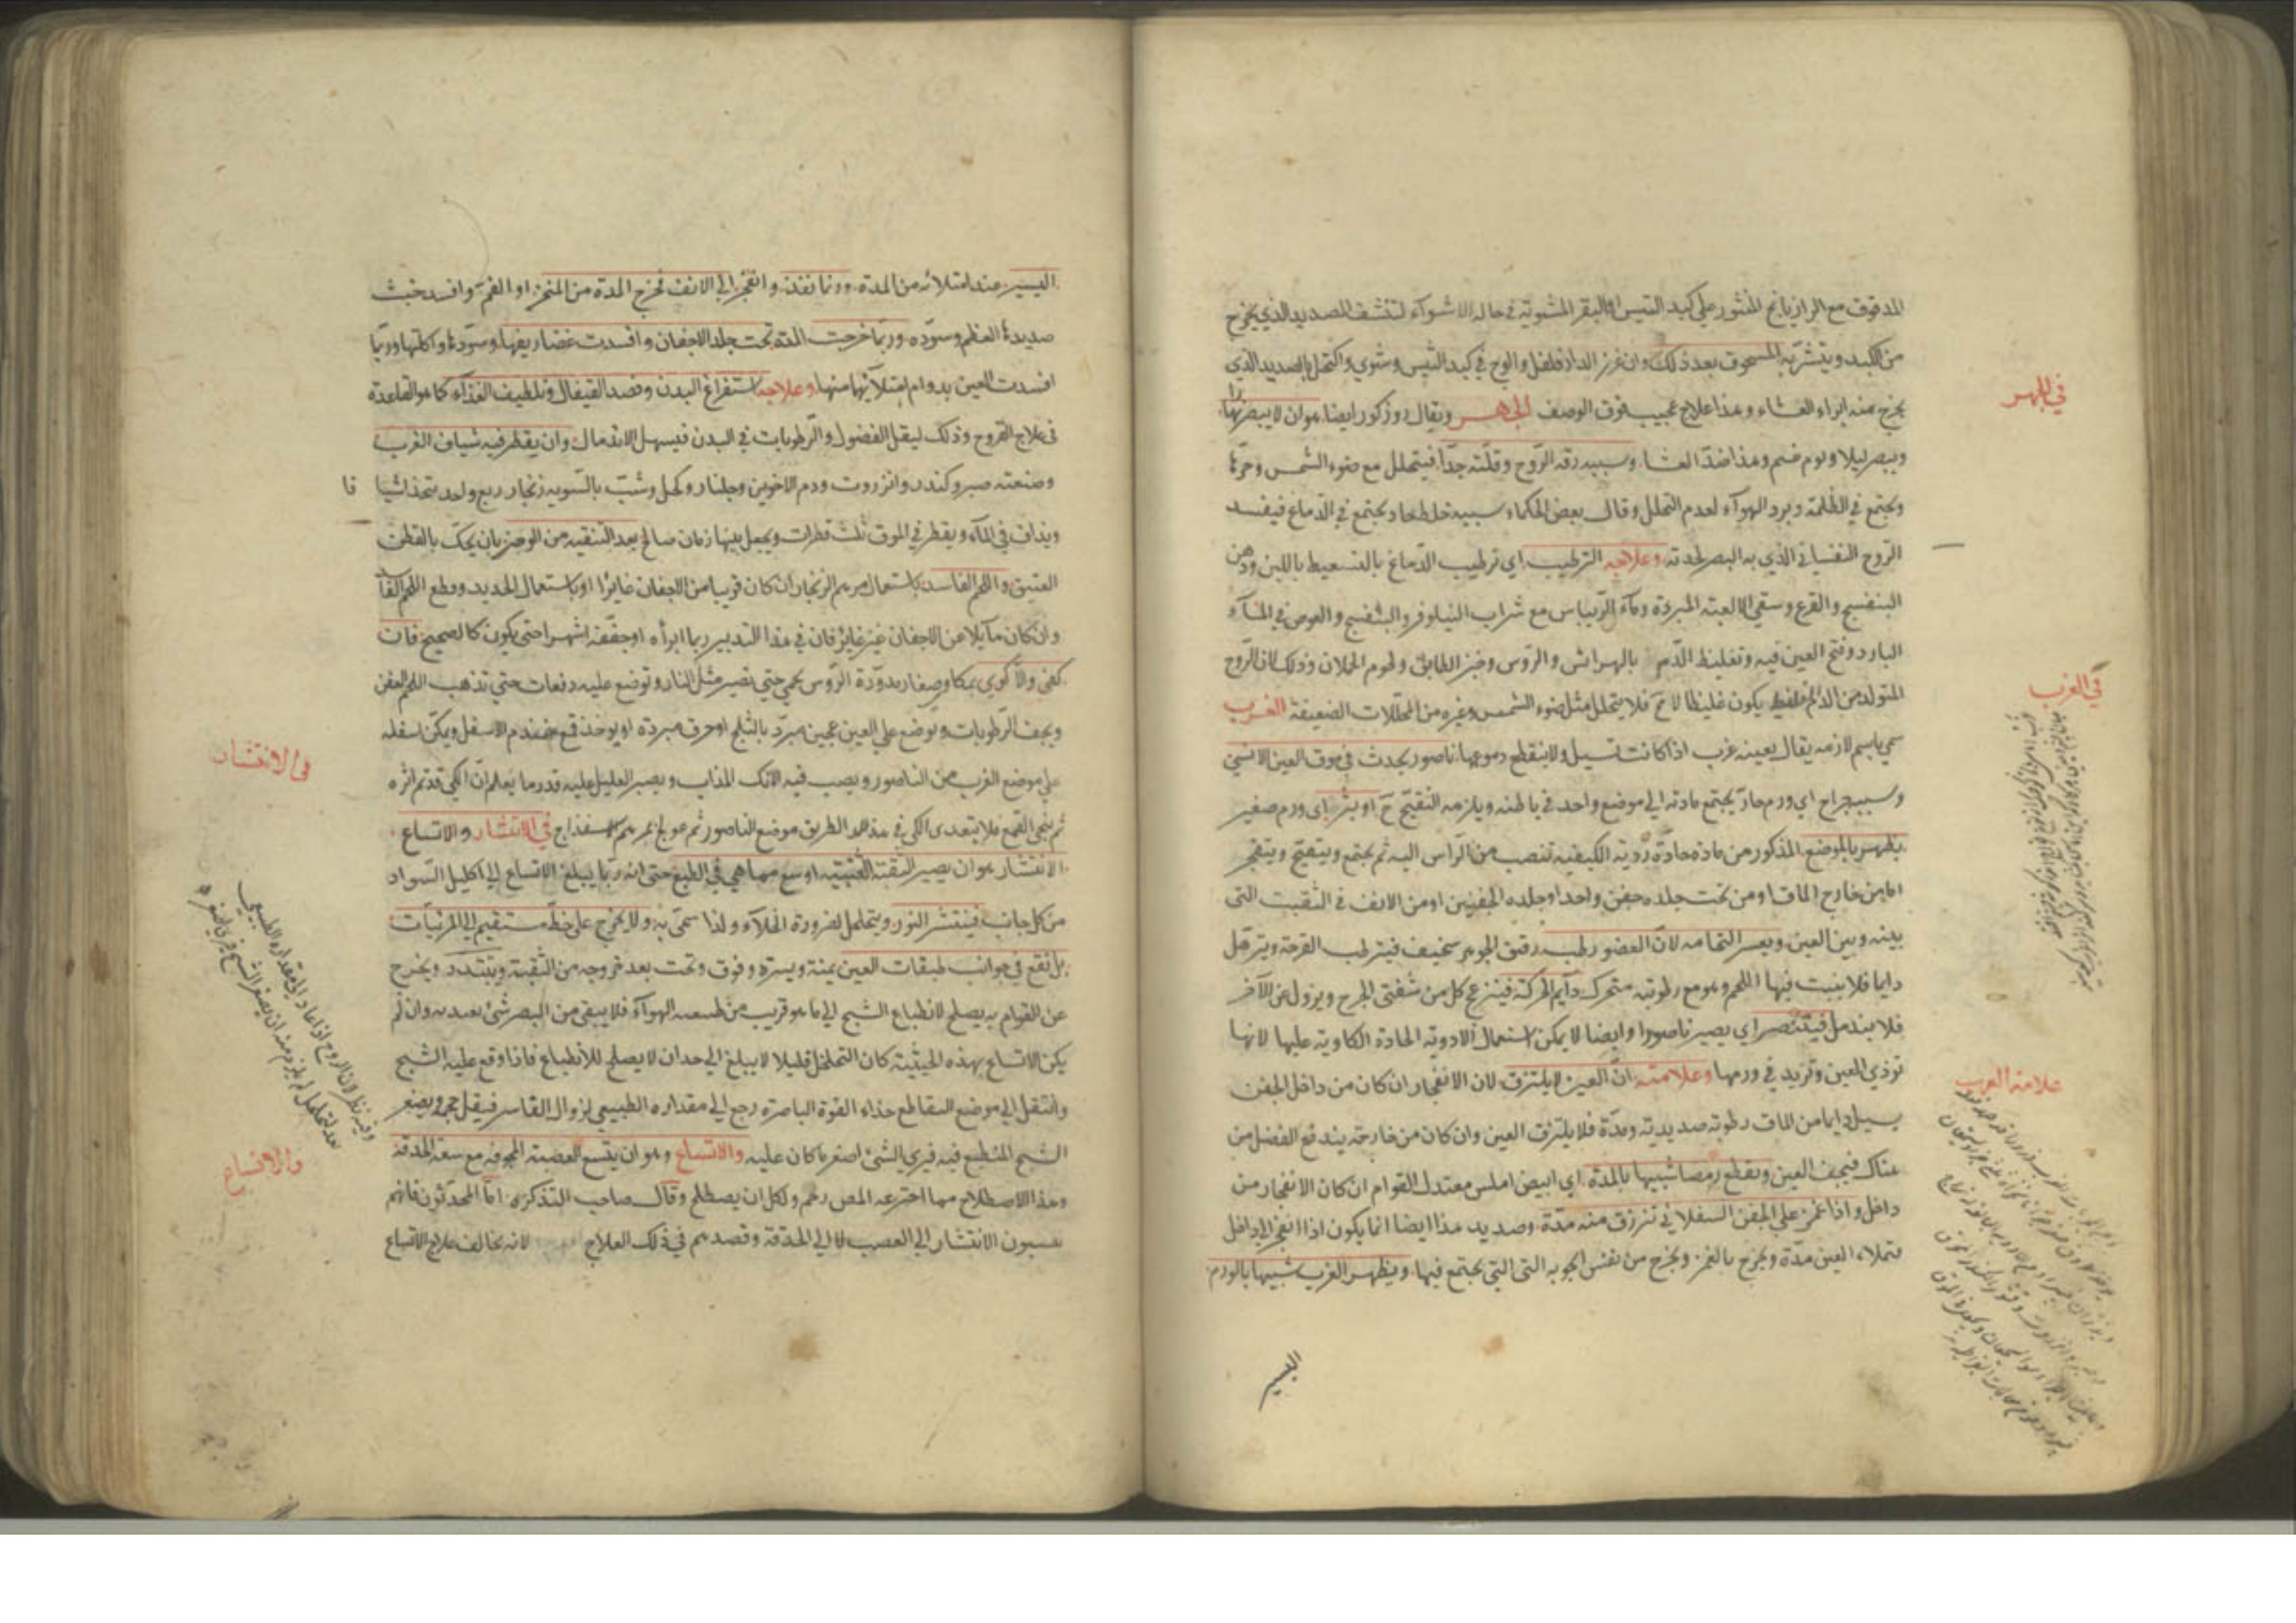 المدقوق مع الرازيانج المنثور على كبد التيس او البقر المشوية في حالة الاشواء لتنشف الصديد الذي يخرج
من الكبد ويتشربه المسحوق بعد ذلك وان غرز الدارفلفل والوج في كبد التيس وشوي واكتحل بالصديد الذي
يخرج منه ابراء العشاء وهذا علاج عجيب فوق الوصف الجهر ويقال روزكور ايضا هو ان لا يبصر نهارا
ويبصر ليلا ويوم غيم وهذا ضد العشا وسببه رقة الروح وقلته جدا فيتحلل مع ضوء الشمس وحرها
ويجتمع في الظلمة وبرد الهوآء لعدم التحلل وقال بعض الحكماء سببه خلط حاد يجتمع في الدماغ فيفسد
الروح النفساني الذي به البصر لحدته وعلاجه الترطيب اي ترطيب الدماغ بالتسعيط باللبن ودهن
البنفسج والقرع وسقي الالعبة المبردة ومآء الريباس مع شراب النيلوفر والبنفسج والغوص في المآء
البارد وفتح العين فيه وتغليظ الدم بالهرائس والرؤس وخبز الطابق ولحوم الحملان وذلك لان الروح
المتولد من الدم الغليظ يكون غليظا لا مح فلا يتحلل مثل ضوء الشمس وغيره من المحللات الضعيفة الغرب
سمي باسم لازمه يقال بعينه غرب اذا كانت تسيل ولا ينقطع دموعها ناصور يحدث في موق العين الانسي
وسببه خراج اي ورم حار يجتمع مادته الى موضع واحد في باطنه ويلزمه التقيح ح او بثر اي ورم صغير
يظهر بالموضع المذكور من مادة حادة ردية الكيفية تنصب من الراس اليه ثم يجتمع ويتقيح وينفجر
اما من خارج الماق او من تحت جلده جفن واحد او جلده الجفنين او من الانف في الثقبة التي
بينه وبين العين ويعسر التحامه لان العضو رطب رقيق الجوهر سخيف فيترطب القرحة ويترهل
دايما فلا ينبت فيها اللحم وهو مع رطوبته متحرك دآيم الحركة فينزعج كل من شفتي الجرح ويزول عن الآخر
فلا يندمل فيتنصر اي يصير ناصورا وايضا لا يمكن استعمال الادوية الحادة الكاوية عليها لانها
توذي العين وتزيد في ورمها وعلامته ان العين لا يلتزق لان الانفجار ان كان من داخل الجفن
يسيل دايما من الماق رطوبة صديدية ومدة فلا يلتزق العين وان كان من خارجه يندفع الفضل من
هناك فيجف العين ويقطع رمصا شبيها بالمدة اي ابيض املس معتدل القوام ان كان الانفجار من
داخل واذا غمز على الجفن السفلاني تنزرق منه مدة وصديد هذا ايضا انما يكون اذا انفجر الى داخل
فتملاء العين مدة ويخرج بالغمز ويخرج من نفس الجوبة التي التي يجتمع فيها ويظهر الغرب شبيها بالورم
اليسير
في الجهر
في الغرب
علامة الغرب
اليسير عند امتلائه من المدة وربما نفذ وانفجر الى الانف فخرج المدة من المنخر او الفم وافسد خبث
صديدها العظم وسوده وربما خرجت المدة تحت جلد الاجفان وافسدت غضاريفها وسودها واكلتها وربما
افسدت العين بدوام امتلآئها منها وعلاجه استفراغ البدن وفصد القيفال وتلطيف الغذآء كما هو القاعدة
في علاج القروح وذلك ليقل الفضول والرطوبات في البدن فيسهل الاندمال وان يقطر فيه شياف الغرب
وصنعته صبر وكندر وانزروت ودم الاخوين وجلنار وكحل وشب بالسوية زنجار ربع واحد يتخذ اشيا فا
ويداف في المآء ويقطر في الموق ثلث قطرات ويجعل بينها زمان صالح بعد التنقية من الوضر بان يحك بالقطن
العتيق واللحم الفاسد باستعمال مرهم الزنجار ان كان قريبا من الاجفان غايرا او باستعمال الحديد وقطع اللحم الفاسد
وان كان مآيلا عن الاجفان غير غاير فان في هذا التدبير ربما ابرأه او جففه اشهرا حتى يكون كالصحيح فان
كفى والا كوي بمكاو صغار مدورة الروس يحمى حتى تصير مثل النار وتوضع عليه دفعات حتى تذهب اللحم العفن
ويجف الرطوبات وتوضع على العين عجين مبرد بالثلج او خرق مبردة او يوخذ قمع منهدم الاسفل ويمكن اسفله
على موضع الغرب من الناصور ويصب فيه الآنك المذاب ويصبر العليل عليه قدر ما يعلم ان الكي قد تم اثره
ثم ينحى القمع فلا يتعدى الكي في هذا الطريق موضع الناصور ثم عولج بمرهم الاسفيذاج في الانتشار والاتساع
الانتشار هو ان يصير الثقبة العنبية اوسع مما هي في الطبع حتى انه ربما يبلغ الاتساع الى اكليل السواد
من كل جانب فينتشر النور ويتخلخل لضرورة الخلآء ولذا سمي به ولا يخرج على خط مستقيم الى المرئيات
بل تقع في جوانب طبقات العين يمنة ويسرة وفوق وتحت بعد خروجه من الثقبة ويتبدد ويخرج
عن القوام به يصلح لانطباع الشبح الى ما هو قريب من طبيعة الهوآء فلا يبقى من البصر شئ يعتد به وان لم
يكن الاتساع بهذه الحيثية كان التخلخل قليلا لا يبلغ الى حد ان لا يصلح للانطباع فاذا وقع عليه الشبح
وانتقل الى موضع التقاطع حذاء القوة الباصرة رجع الى مقداره الطبيعي لزوال القاسر فيقل حجمه ويصغر
الشبح المنطبع فيه فيري الشئ اصغر ما كان عليه والاتساع وهو ان يتسع العصبة المجوفة مع سعة الحدقة
وهذا الاصطلاح مما اخترعه المص رحم ولكل ان يصطلح وقال صاحب التذكرة اما المحدثون فانهم
ينسبون الانتشار الى العصب لا الى الحدقة وقصدهم في ذلك العلاج لانه يخالف علاج الاتساع
في الانتشار
وفيه نظر لان الروح اذا عاد الى مقداره الطبيعي
والاتساع